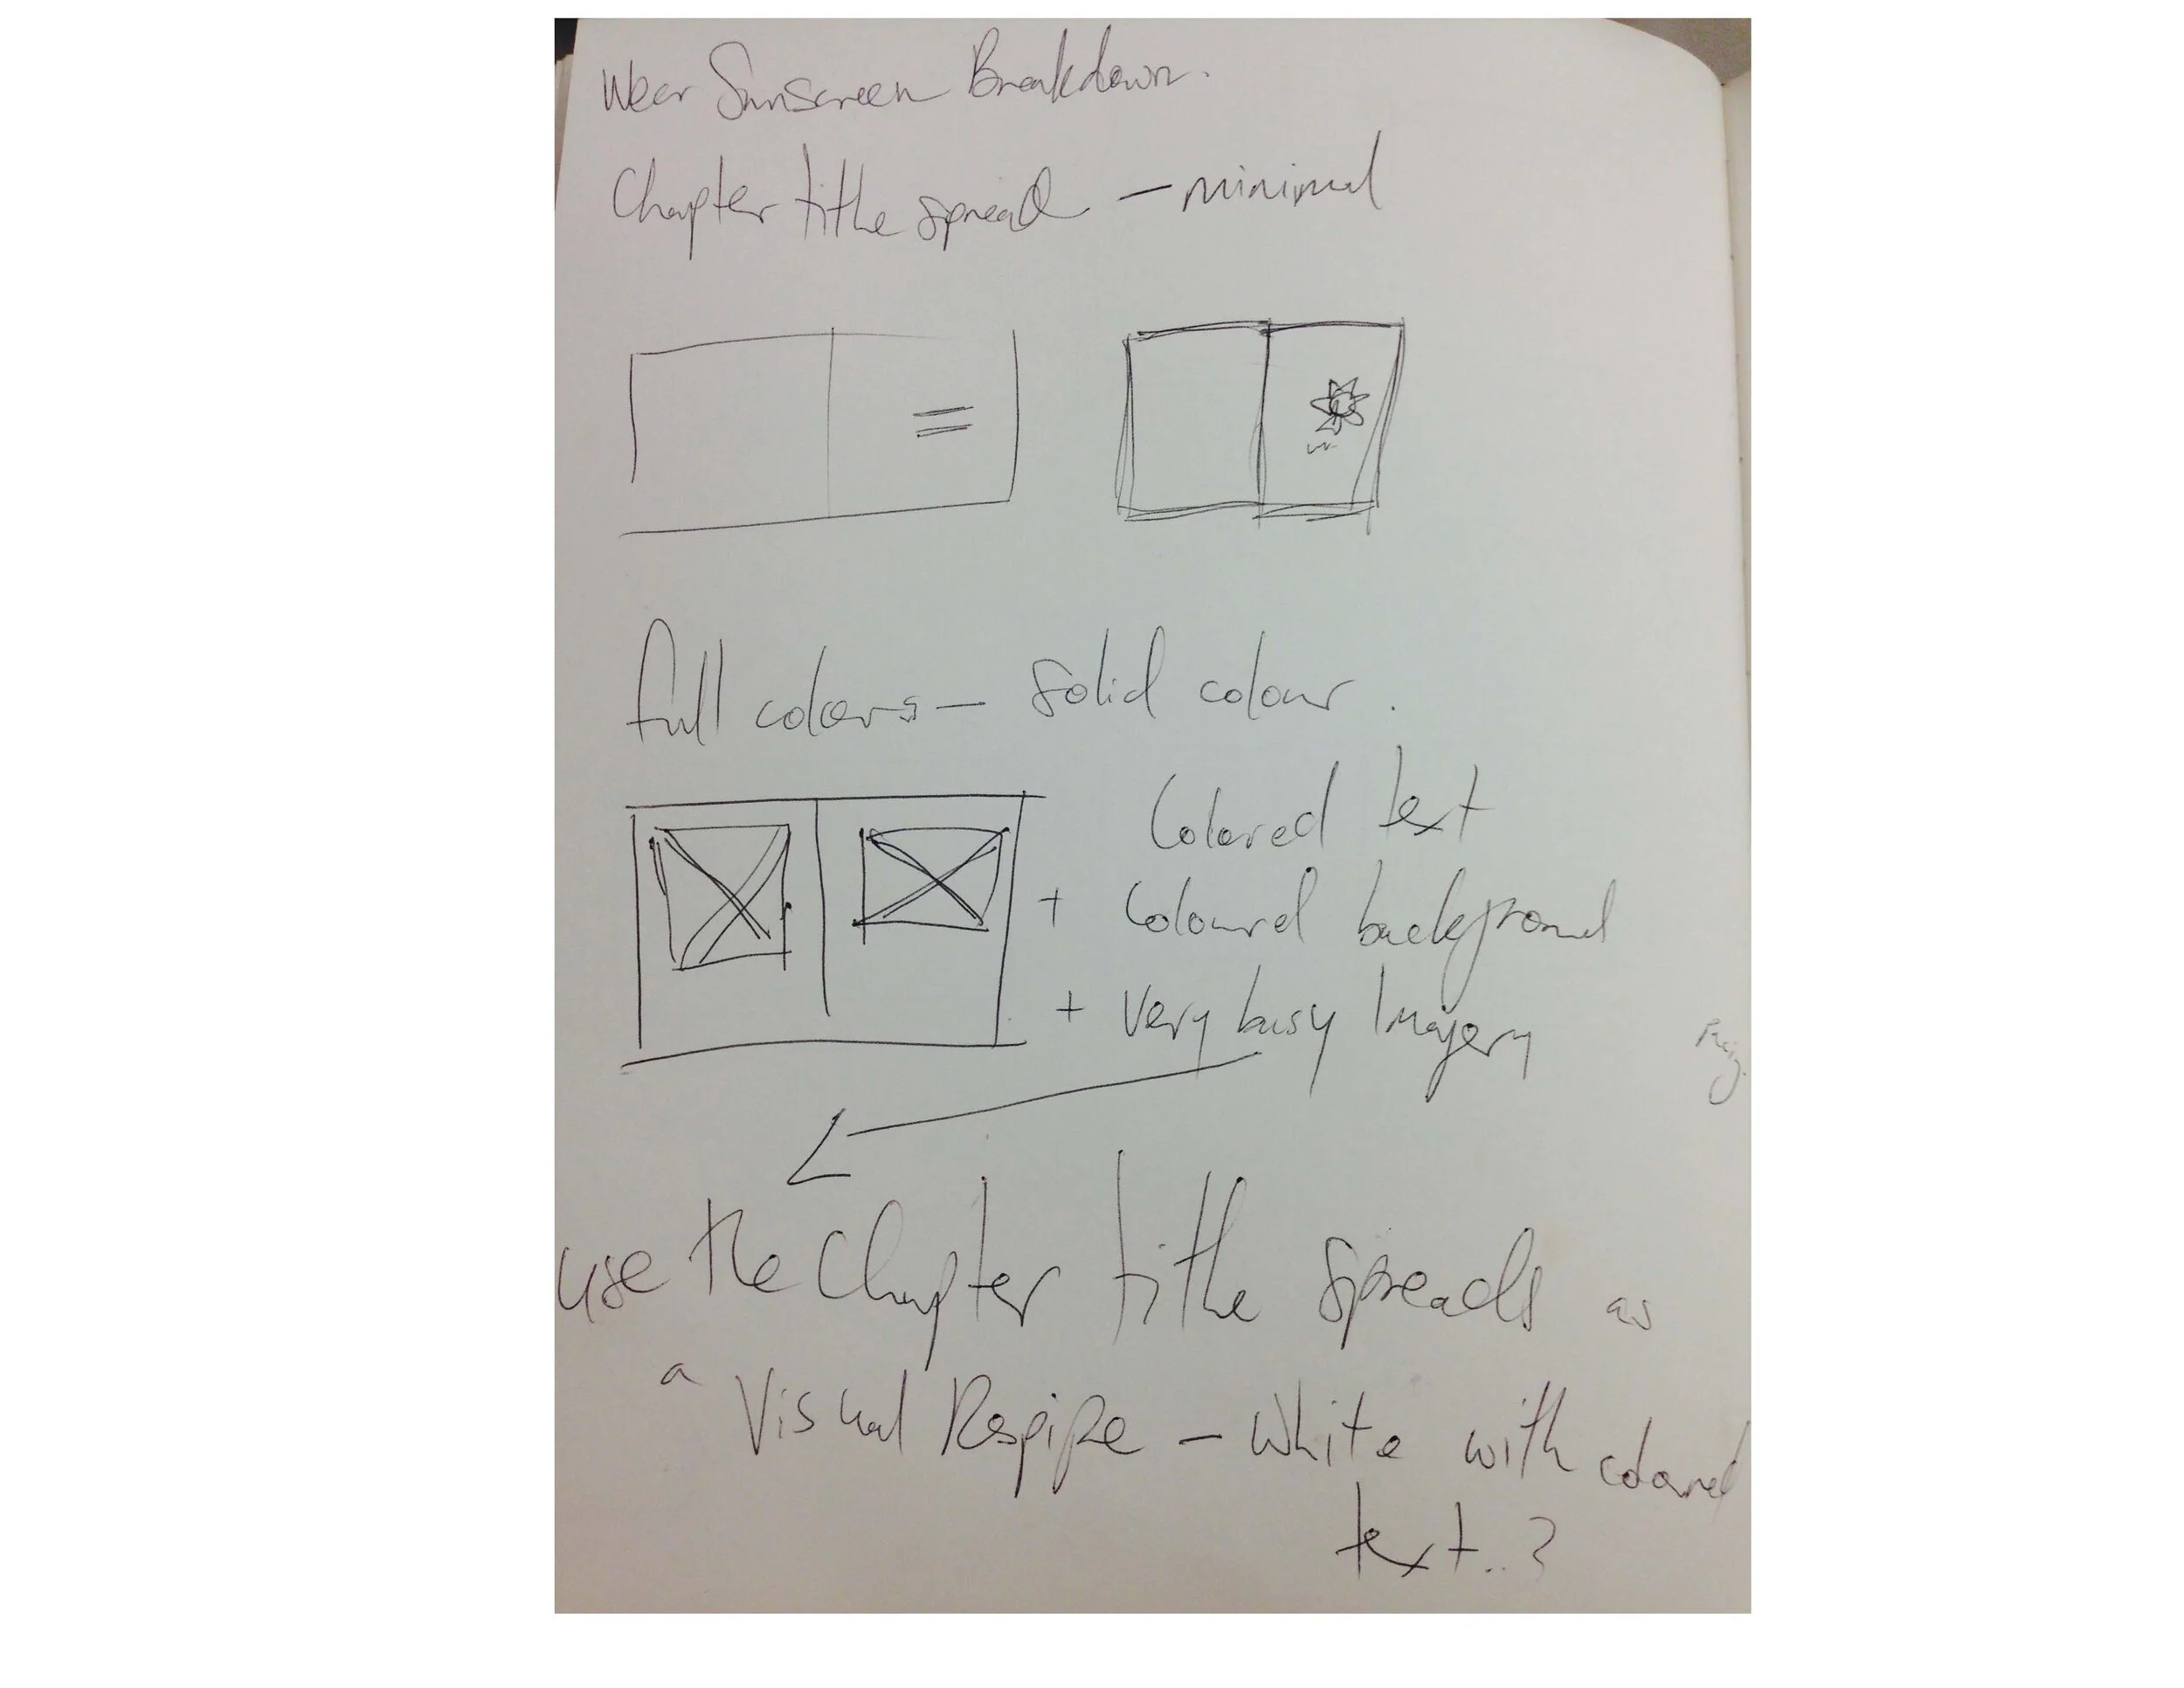 Wear Sunscreen Breakdown.
Chapter title spread – minimal
full colours – solid colour.
Colored text
+ Coloured background
+ Very busy Imagery
use the Chapter title spreads as
a Visual Respipe – White with colored
text..?